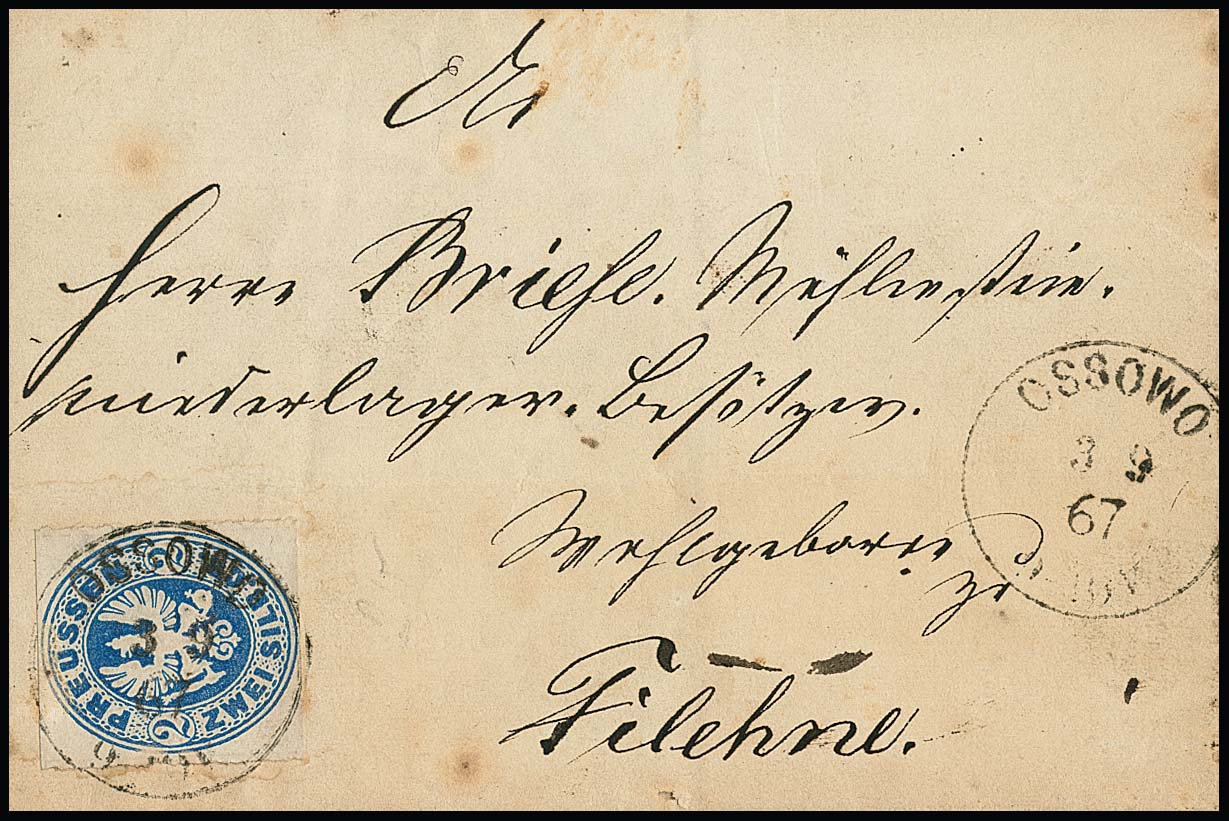 An
Herrn Briese. Mühlenstein.
niederlager. Besitzer.
Wohlgeboren
zu
Filehne.
OSSOWO
3 9
67
PREUSSEN ZWEI SILB
2
OSSOWO
3 9
67
9